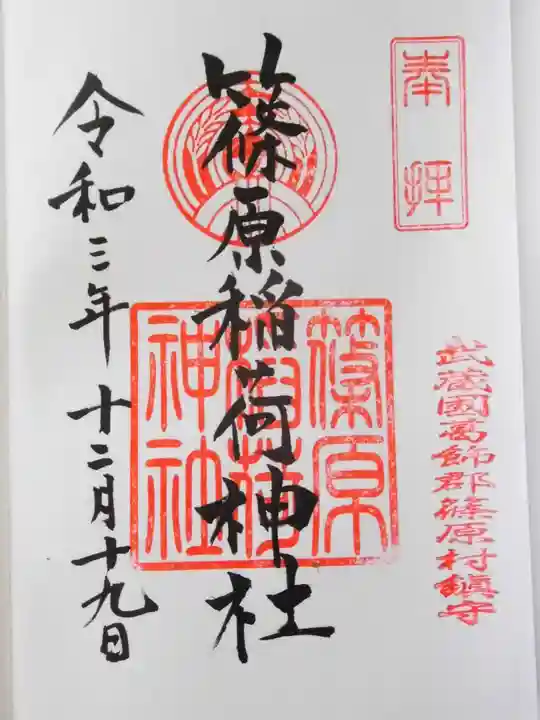 奉拝
武蔵國葛飾郡篠原村鎮守
篠原稲荷神社
篠原
稲荷
神社
令和三年 十二月十九日